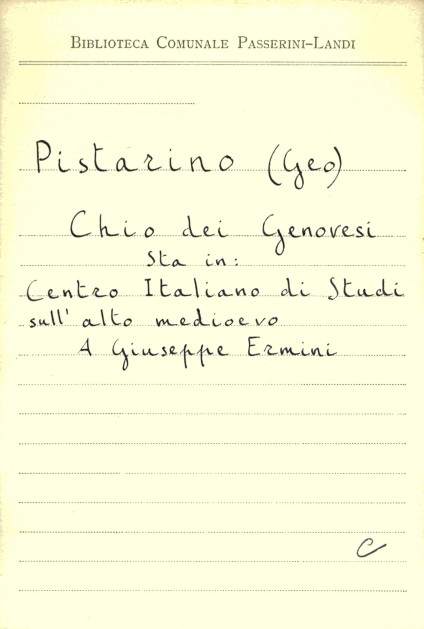 Biblioteca Comunale Passerini-Landi
Pistarino (Geo)
Chio dei Genovesi
Sta in:
Centro Italiano di Studi
sull'alto medioevo
A Giuseppe Ermini
C